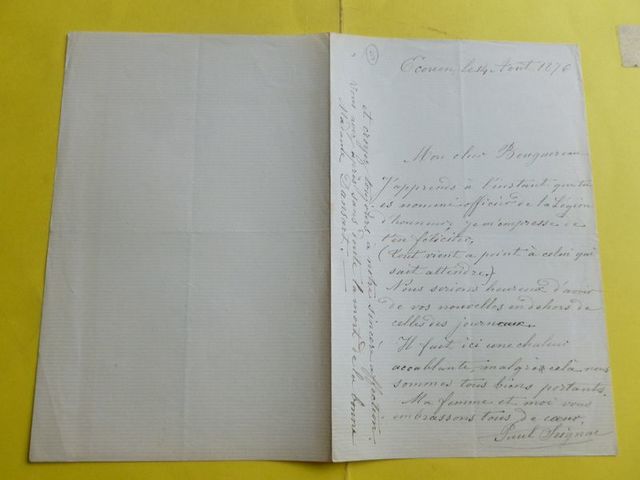 Ecouen, le 14 Août 1876
Mon cher Bouguereau
J'apprends à l'instant que tu
es nommé officier de la Légion
d'honneur, je m'empresse de
t'en féliciter,
(tout vient a point à celui qui
sait attendre.)
Nous serions heureux d'avoir
de vos nouvelles en dehors de
celles des journeaux.
Il fait ici une chaleur
accablante, malgré celà nous
sommes tous biens portants.
Ma femme et moi vous
embrassons tous de cœur
Paul Seignac
et croyez toujours à notre sincère affection.
Vous avez appris sans doute la mort de la bonne
Madame Dansart.